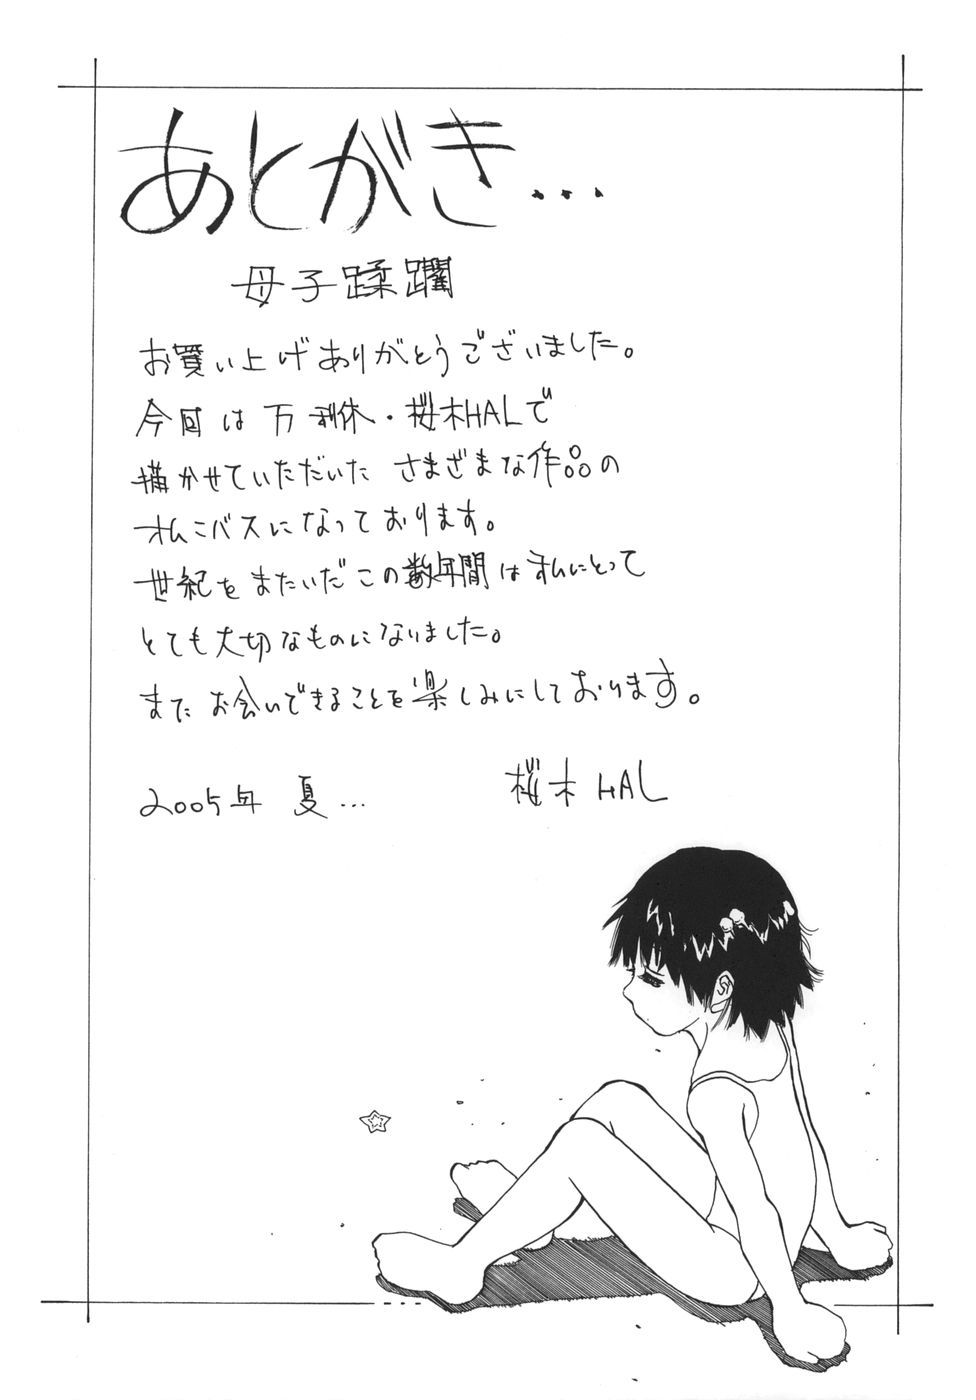 あとがき...
母子蹂躙
お買い上げありがとうございました。
今回は万利休・桜木HALで
描かせていただいたさまざまな作品の
オムニバスになっております。
世紀をまたいだこの数年間は私にとって
とても大切なものになりました。
またお会いできることを楽しみにしております。
2005年 夏...
桜木HAL